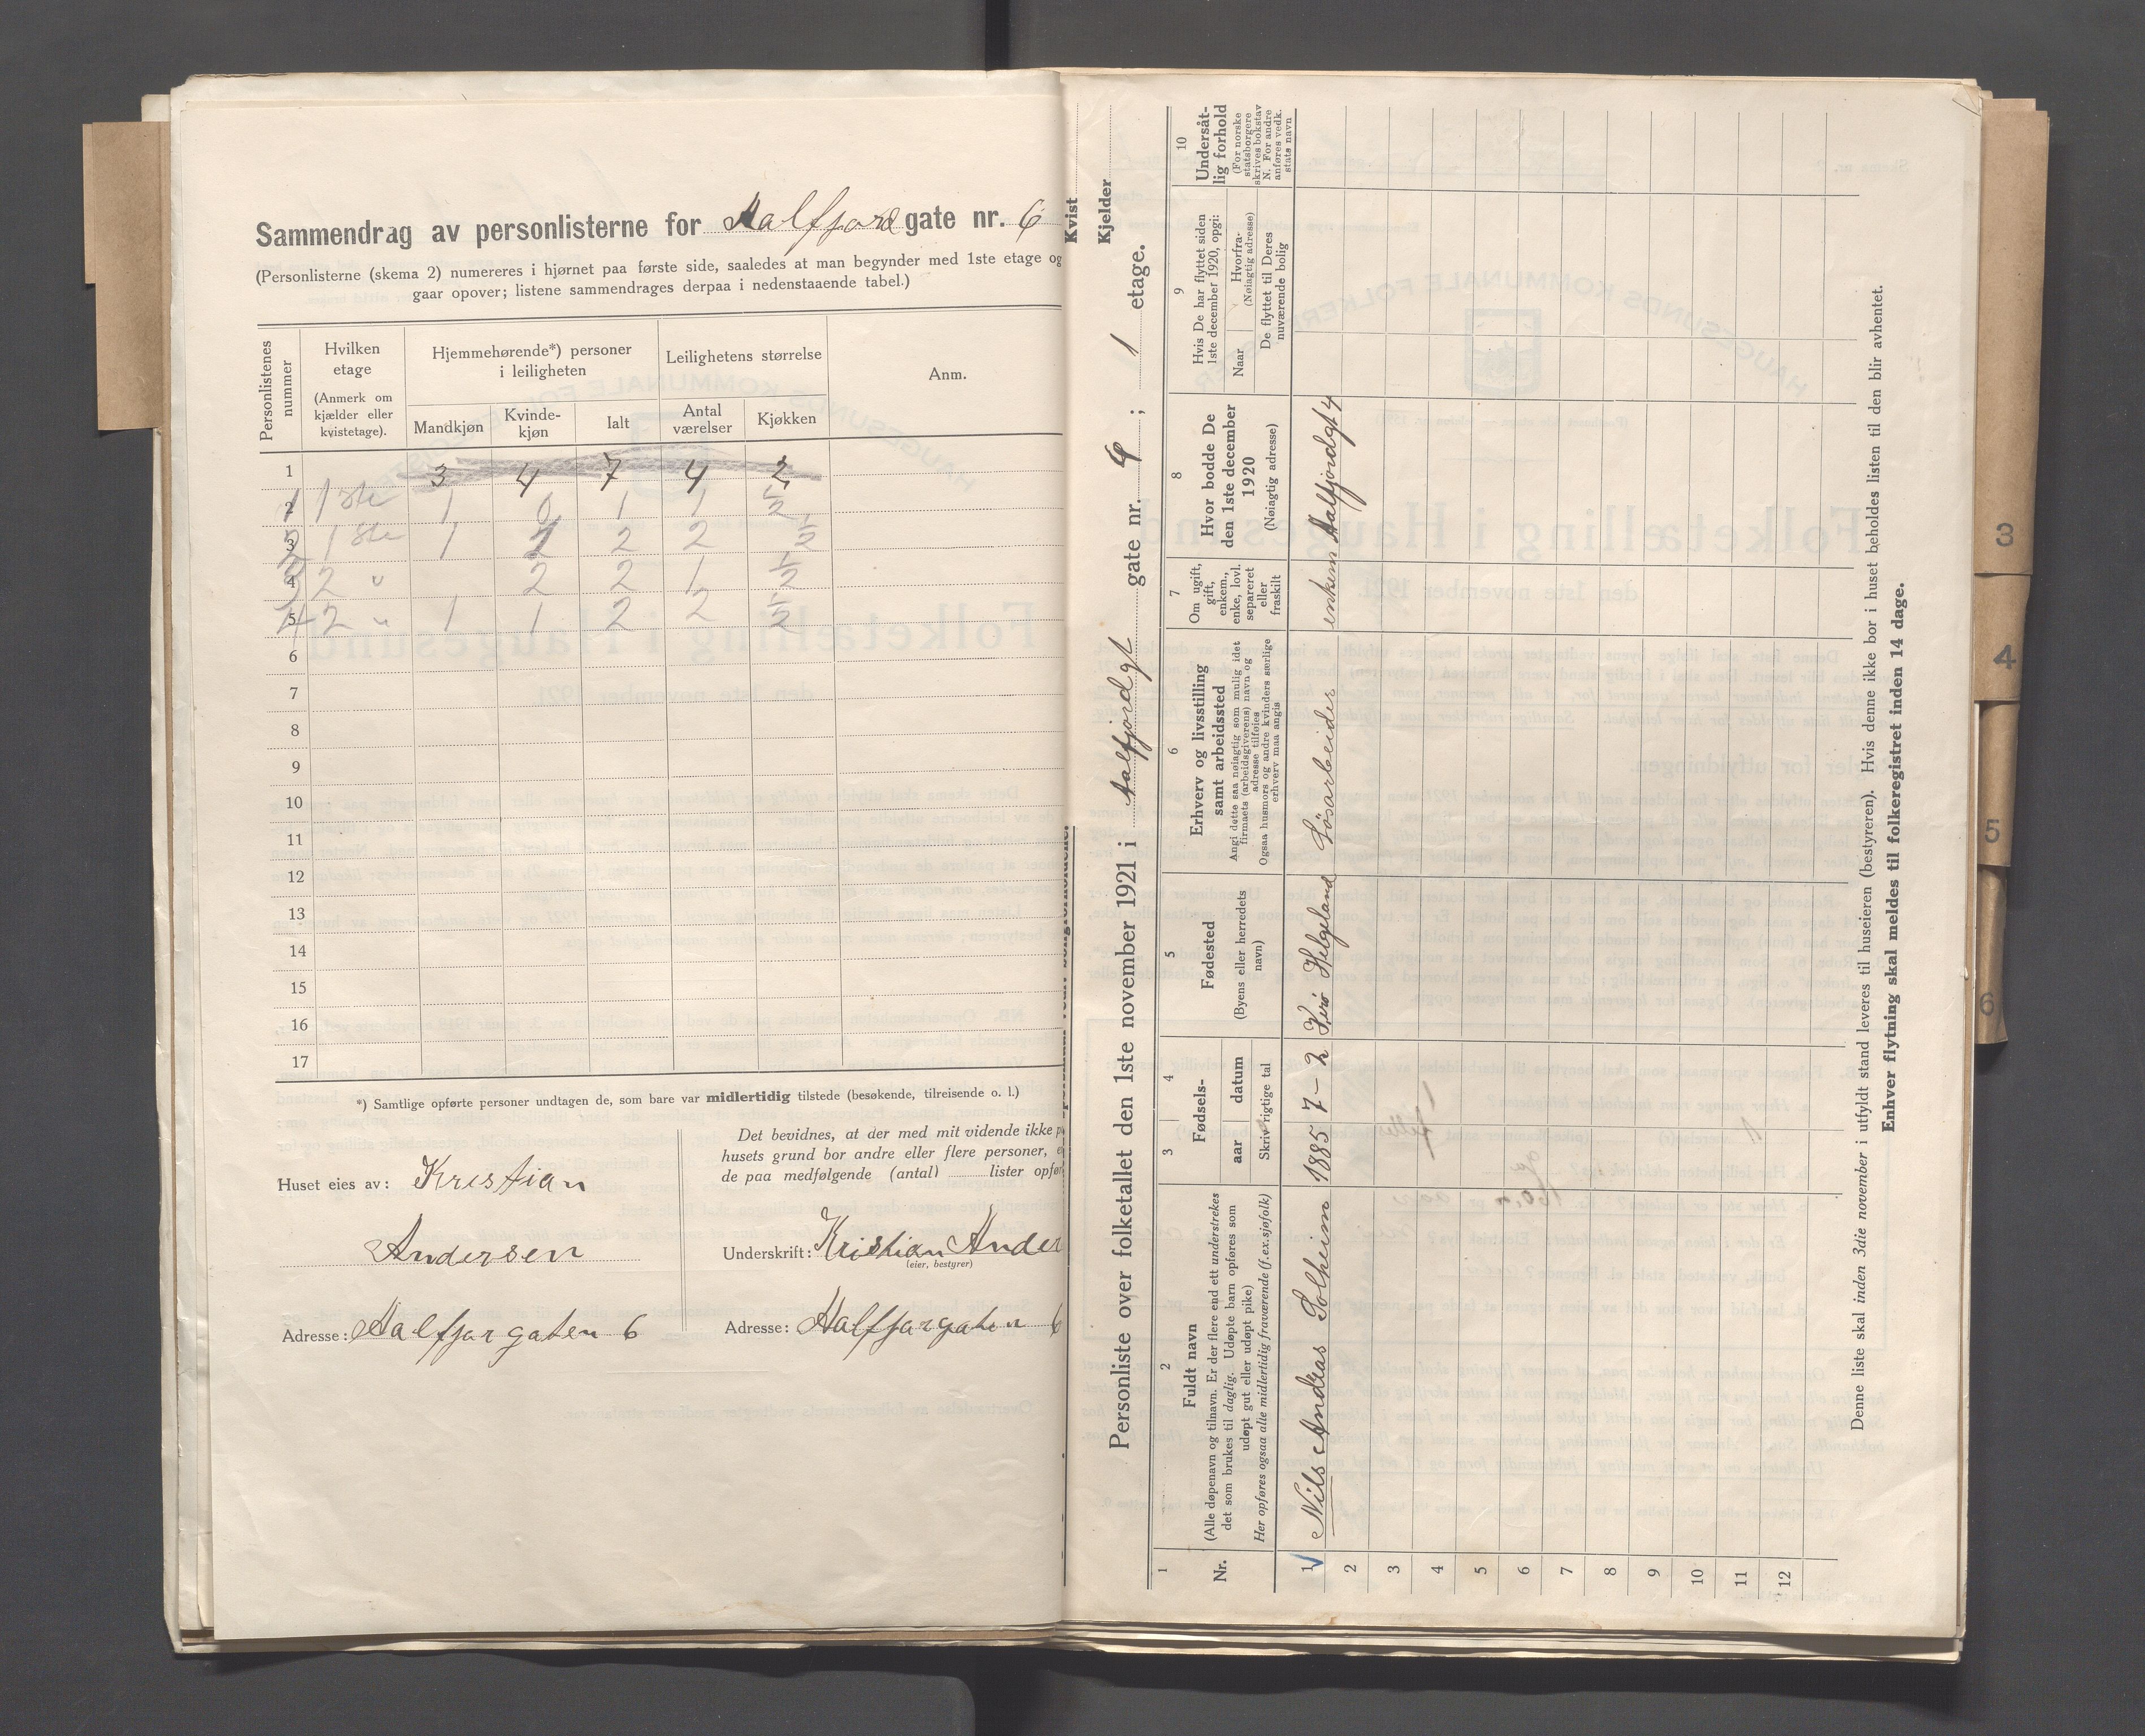 Sammendrag av personlisterne for Aalfjord gate nr. 6
(Personlisterne (skema 2) numereres i hjørnet paa første side, saaledes at man begynder med 1ste etage og
gaar opover; listene sammendrages derpaa i nedenstaaende tabel.)
Personlistenes nummer
Hvilken etage
(Anmerk om kjælder eller kvistetage).
Hjemmehørende*) personer i leiligheten
Leilighetens størrelse
Anm.
Mandkjøn Kvinde-kjøn Ialt Antal værelser Kjøkken
1 3 4 7 4 2
2 1 1 ste 1 0 1 1 1/2
3 2 1 ste 1 1 2 2 1/2
4 3 2 " 2 2 1 1/2
5 4 2 " 1 1 2 2 1/2
6
7
8
9
10
11
12
13
14
15
16
17
*) Samtlige opførte personer undtagen de, som bare var midlertidig tilstede (besøkende, tilreisende o. l.)
Huset eies av: Kristian
Andersen
Adresse: Aalfjargaten 6
Det bevidnes, at der med mit vidende ikke p
husets grund bor andre eller flere personer, e
de paa medfølgende (antal) lister opfør
Underskrift: Kristian Ander
(eier, bestyrer)
Adresse: Aalfjargaten 6
Kvist
Kjelder
Personliste over folketallet den 1ste november 1921 i Aalfjordgt gate nr. 4 ; 1 etage.
1 2 3 4 5 6 7 8 9 10
Nr.
Fuldt navn
(Alle døpenavn og tilnavn. Er der flere end ett understrekes
det som brukes til daglig. Udøpte barn opføres som
udøpt gut eller udøpt pike)
Her opføres ogsaa alle midlertidig fraværende (f.ex.sjøfolk)
Fødsels-
aar datum
Skriv rigtige tal
Fødested
(Byens eller herredets navn)
Erhverv og livsstilling
samt arbeidssted
Angi dette saa nøiagtig som mulig idet
firmaets (arbeidsgiverens) navn og
adresse tilføies
Ogsaa husmors og andre kvinders særlige
erhverv maa angis
Om ugift,
gift,
enkem.,
enke, lovl.
separeret
eller
fraskilt
Hvor bodde De
den 1ste december
1920
(Nøiagtig adresse)
Hvis De har flyttet siden
1ste december 1920, opgi:
Naar
Hvorfra-
(Nøiagtig adresse)
De flyttet til Deres
nuværende bolig
Undersåt-
lig forhold
(For norske
statsborgere
skrives bokstav
N. For andre
anføres vedk.
stats navn
1 Nils Andreas Solheim 1885 7-2 Helgeland Løsarbeider enkem Aalfjordgt 4
2
3
4
5
6
7
8
9
10
11
12
Denne liste skal inden 3die november i utfyldt stand leveres til huseieren (bestyreren). Hvis denne ikke bor i huset beholdes listen til den blir avhentet.
Enhver flytning skal meldes til folkeregistret inden 14 dage.
3
4
5
6